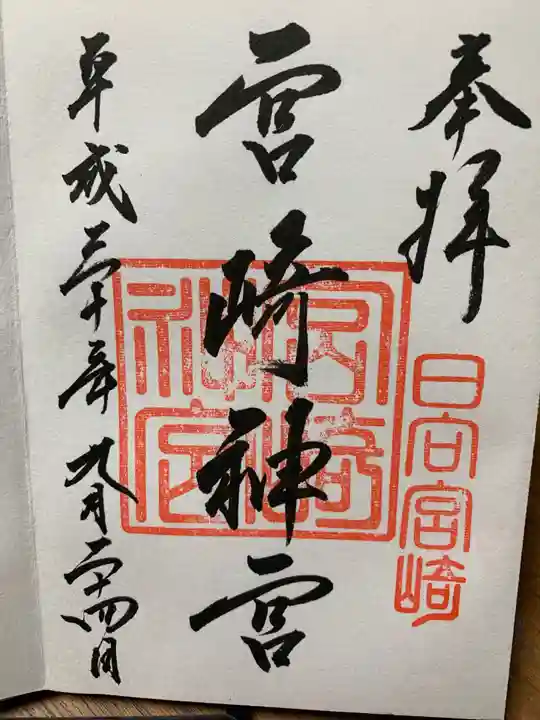 奉拝
日向宮崎
宮崎神宮
平成三十年九月二十四日